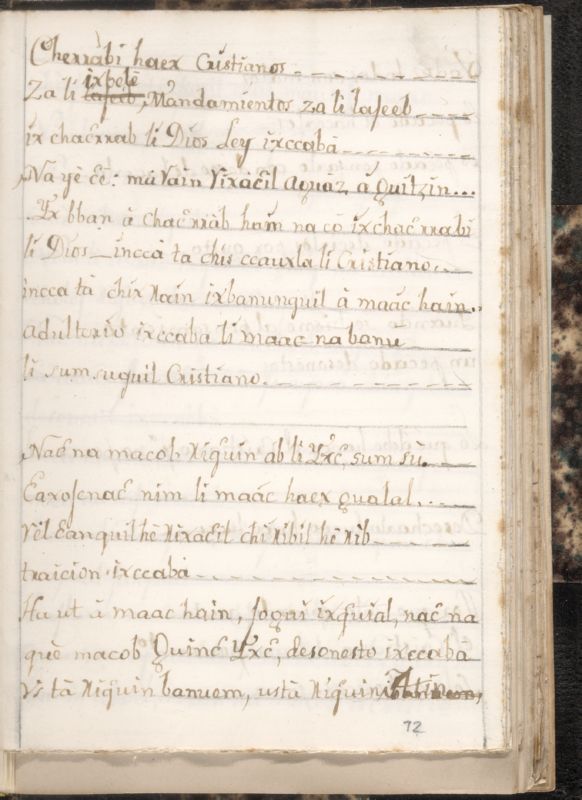 Cherràbi haex Cristianos
ixbele
Za li Mandamientos za li laseeb
ix chac̃rrab li Dios Ley ixccaba
Na yè c̃e: ma vain Vixàc̃il aguàz á guitzin...
Yx bban à chac̃rràb hain na cò ixchac̃rrabi
li Dios inccà ta chis ccauxla li Cristiano.
incca tà chix Nain ixbanunquil à maàc hain..
adulterio ixccaba li maac na banu
li sumsuquil Cristiano.
Nac̃ na macob Niq̃uin ab li Yxc̃, sum sù.
Caxosenac̃ nim li maác haex qualal...
vèl Canquilhè Nixàc̃il chi Nibil hè Nib
traicion ixccabà
Ha ut à maac hain, soqai ixq̃uial, nac̃ na
què macob Quinc̃ Yxc̃, desonesto ixccaba
Vs tà Niq̃uin banuem, ustà Niq̃uin Atin
72